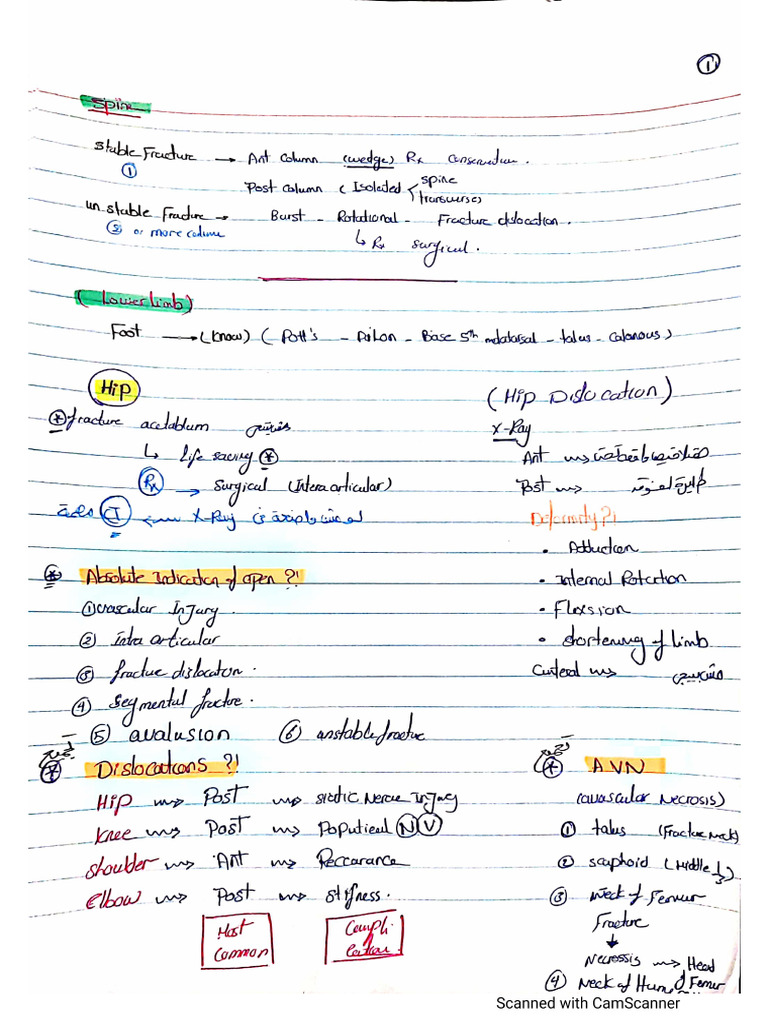 1
Spine
Stable Fracture → Ant column (wedge) Rx conservative.
① Post column (Isolated < spine
transverse)
unstable Fracture → Burst - Rotational - Fracture dislocation.
② or more column ↳ Rx surgical.
(Lower limb)
Foot → (know) (Pott's - Pilon - Base 5th metatarsal - talus - calcanous)
Hip
fracture acetablum
↳ life saving
Rx → surgical (Intera articular)
CT ← X-Ray لو عندك واضحة في
Absolute Indication of open ?!
① vascular Injury.
② intra articular
③ fractue dislocation.
④ segmental fractre.
⑤ avalusion ⑥ unstable fractue
Dislocations ?!
Hip → Post → siatic Nerve injury
knee → Post → Popliteal N V
shoulder → Ant → Reccarance
elbow → Post → stifness.
Most Common
Compli cation
(Hip Dislocation)
X-Ray
Ant →
Post →
Deformity ?!
• Adduction
• Internal Rotation
• Flexsion
• shortening of limb
AVN
(avascular Necrosis)
① talus (Fractue neck)
② scaphoid (Middle 1/3)
③ neck of Femur
Fracture
↓
Necrossis → Head of Femur
④ Neck of Hum
Scanned with CamScanner